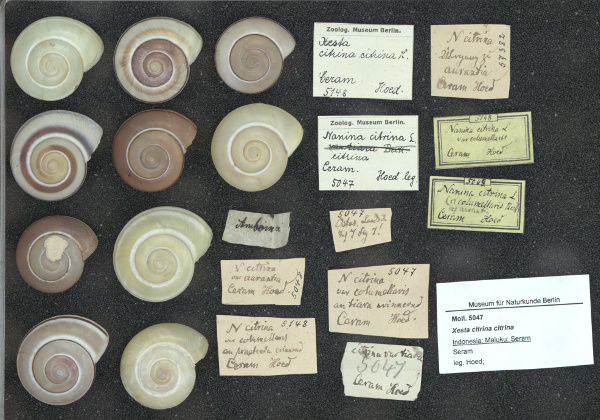 Zoolog. Museum Berlin.
Xesta
citrina citrina L.
Ceram
5148 Hoed.
N citrina
aurantia
Ceram Hoed
57382
Zoolog. Museum Berlin.
Nanina citrina L
citrina
Ceram.
Hoed leg
5047
5148
Nanina citrina L
var columellaris
Ceram Hoed
5048
Nanina citrina L
Ceram Hoed
Amboina
5047
N citrina
var aurantia
Ceram Hoed
5048
N citrina 5047
var columellaris
Ceram Hoed.
N citrina 5148
var columellaris
Ceram Hoed
citrina var
5047
Ceram Hoed
Museum für Naturkunde Berlin
Moll. 5047
Xesta citrina citrina
Indonesia: Maluku: Seram
Seram
leg. Hoed;